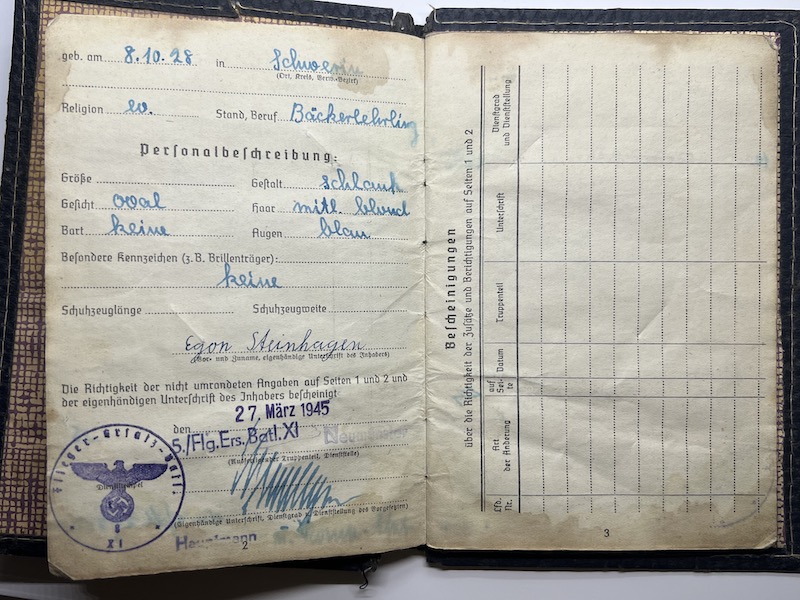 geb. am 8.10.28 in Schwerin
(Ort, Kreis, Verw.-Bezirk)
Religion ev. Stand, Beruf Bäckerlehrling
Personalbeschreibung:
Größe Gestalt schlank
Gesicht oval Haar mitl. blond
Bart keine Augen blau
Besondere Kennzeichen (z. B. Brillenträger):
keine
Schuhzeuglänge Schuhzeugweite
Egon Steinhagen
(Vor- und Zuname, eigenhändige Unterschrift des Inhabers)
Die Richtigkeit der nicht umrandeten Angaben auf Seiten 1 und 2 und
der eigenhändigen Unterschrift des Inhabers bescheinigt
den 27. März 1945
5./Flg.Ers.Batl. XI
(Ausfertigender Truppenteil, Dienststelle)
Flieger-Ersatz-Batl.
Dienststempel
XI
(Eigenhändige Unterschrift, Dienstgrad u. Dienststellung des Vorgesetzten)
Hauptmann
2
Bescheinigungen
über die Richtigkeit der Zusätze und Berichtigungen auf Seiten 1 und 2
Lfd. Nr.
Art der Änderung
auf Seite
Datum
Truppenteil
Unterschrift
Dienstgrad und Dienststellung
3